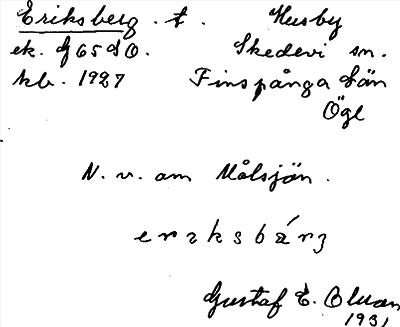 Eriksberg . t. Husby
ek. G 65 SO. Skedevi sn.
kb. 1927 Finspånga län
Ögl
N. v. om Målsjön.
erɩksbárʒ
Gustaf E. Bluan
1931